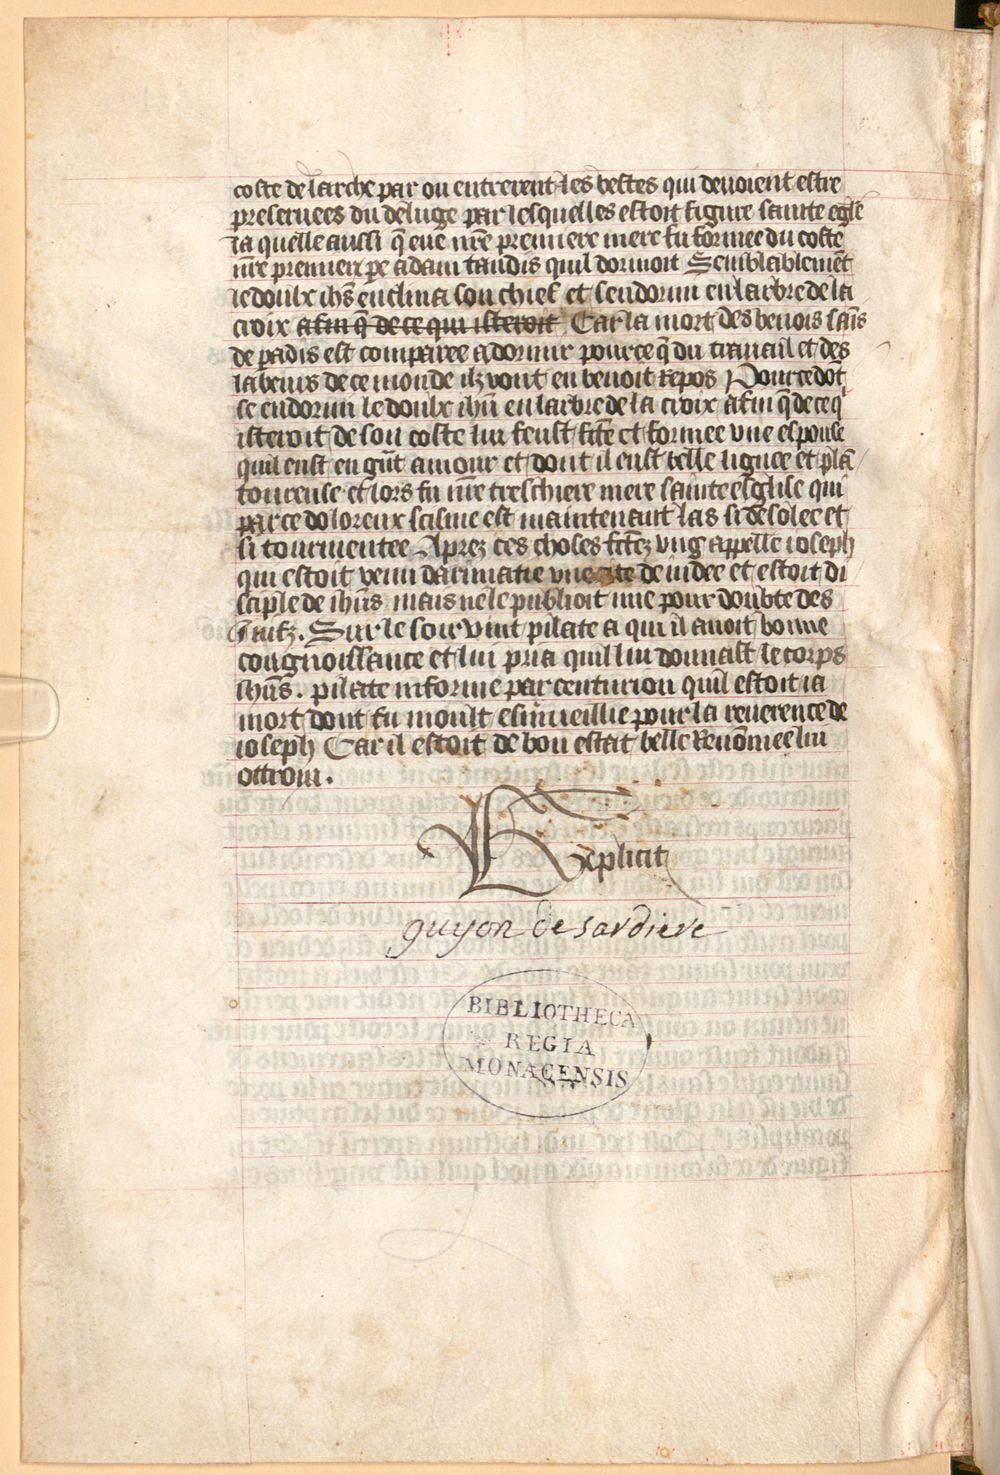 coste de larche par ou entrerent les bestes qui deuoient estre
preseruees du deluge par lesquelles estoit figure sainte egle
la quelle aussi q̄ eue nr̄e premiere mere fu formee du coste
nr̄e premier pe adam tandis quil dormoit Semblablemēt
le doulx ihs̄ enclina son chief et sendormi en larbre de la
croix afin q̄ de ce qui isteroit Car la mort des benois sāis
de padis est comparee a dormir pour ce q̄ du trauail et des
labeurs de ce monde ilz vont en benoit repos Pour ce dōt
se endormi le doulx ihū en larbre de la croix afin q̄ de ce q
isteroit de son coste lui feust fc̄te et formee vne espouse
quil eust en gūt amour et dont il eust belle lignee et plā
toureuse et lors fu nr̄e treschiere mere sainte esglise qui
par ce doloreux scisme est maintenant las si desolee et
si tourmentee Aprez ces choses fc̄tez vng appelle ioseph
qui estoit venu darimatie vne cite de iudee et estoit di
sciple de ihūs mais ne le publioit mie pour doubte des
Juifz. Sur le soir vint pilate a qui il auoit bonne
congnoissance et lui pria quil lui donnast le corps
ihūs. pilate informe par centurion quil estoit ia
mort dont fu moult esmerueillie pour la reuerence de
ioseph Car il estoit de bon estat belle renōmee lui
ottroia.
Explicit
guyon de sardiere
BIBLIOTHECA
REGIA
MONACENSIS